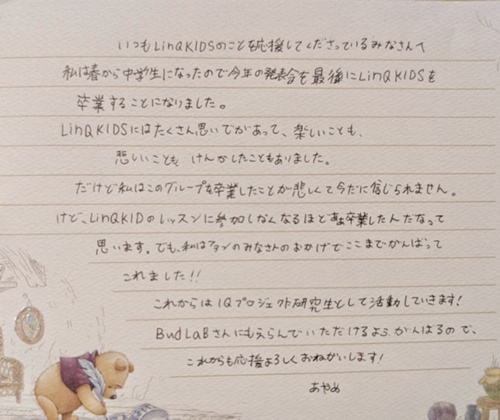 いつもLinQKIDSのことを応援してくださっているみなさんへ
私は春から中学生になったので今年の発表会を最後にLinQKIDSを
卒業することになりました。
LinQKIDSにはたくさん思いでがあって、楽しいことも、
悲しいことも けんかしたこともありました。
だけど私はこのグループを卒業したことが悲しくて今だに信じられません。
けど、LinQKIDのレッスンに参加しなくなるほど卒業したんだなって
思います。でも、私はファンのみなさんのおかげでここまでがんばって
これました!!
これからはIQプロジェクト研究生として活動していきます!
BudLaBさんにもえらんでいただけるよう、がんばるので、
これからも応援よろしくおねがいします!
あやめ